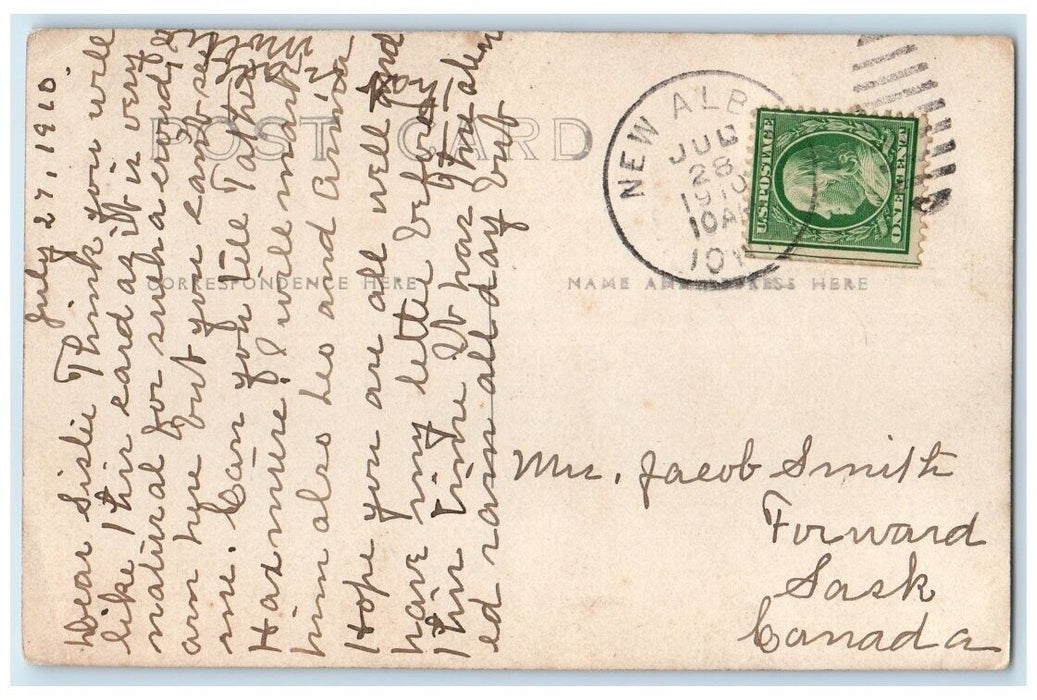 POST CARD
CORRESPONDENCE HERE
NAME AND ADDRESS HERE
NEW ALB
JUL
28
1910
10 AM
IOW
U.S. POSTAGE
ONE CENT
July 27, 1910.
Dear Sister Think you will
like this card as it is very
natural for such a crowd, I
am here but you can't see
me. Can you tell
I will mark
him also Leo and
Hope you all well and
have my letter before
this time It has
ed rain all day but
Mrs. Jacob Smith
Forward
Sask
Canada